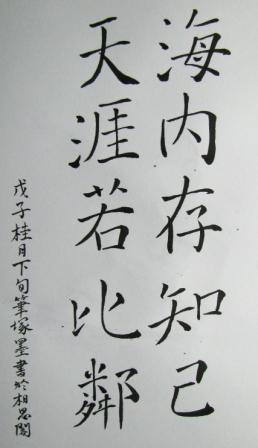 海内存知己
天涯若比鄰
戊子桂月下旬筆塚墨書於相思閣